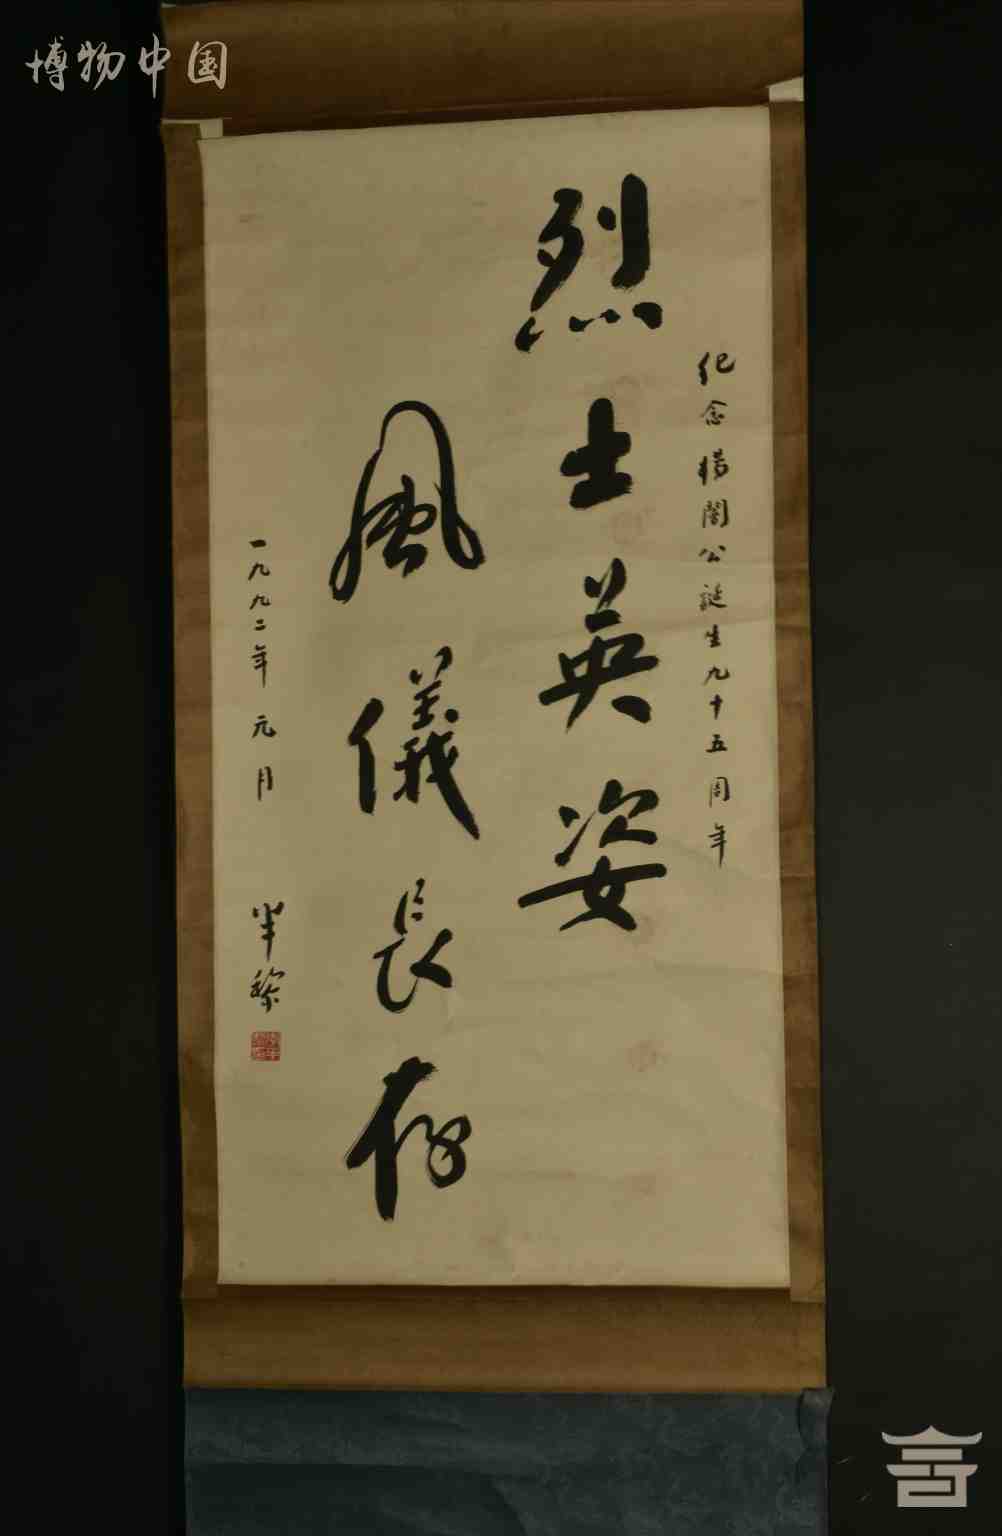 博物中国
紀念楊闇公誕生九十五周年
烈士英姿
風儀長存
一九九二年元月
半黎